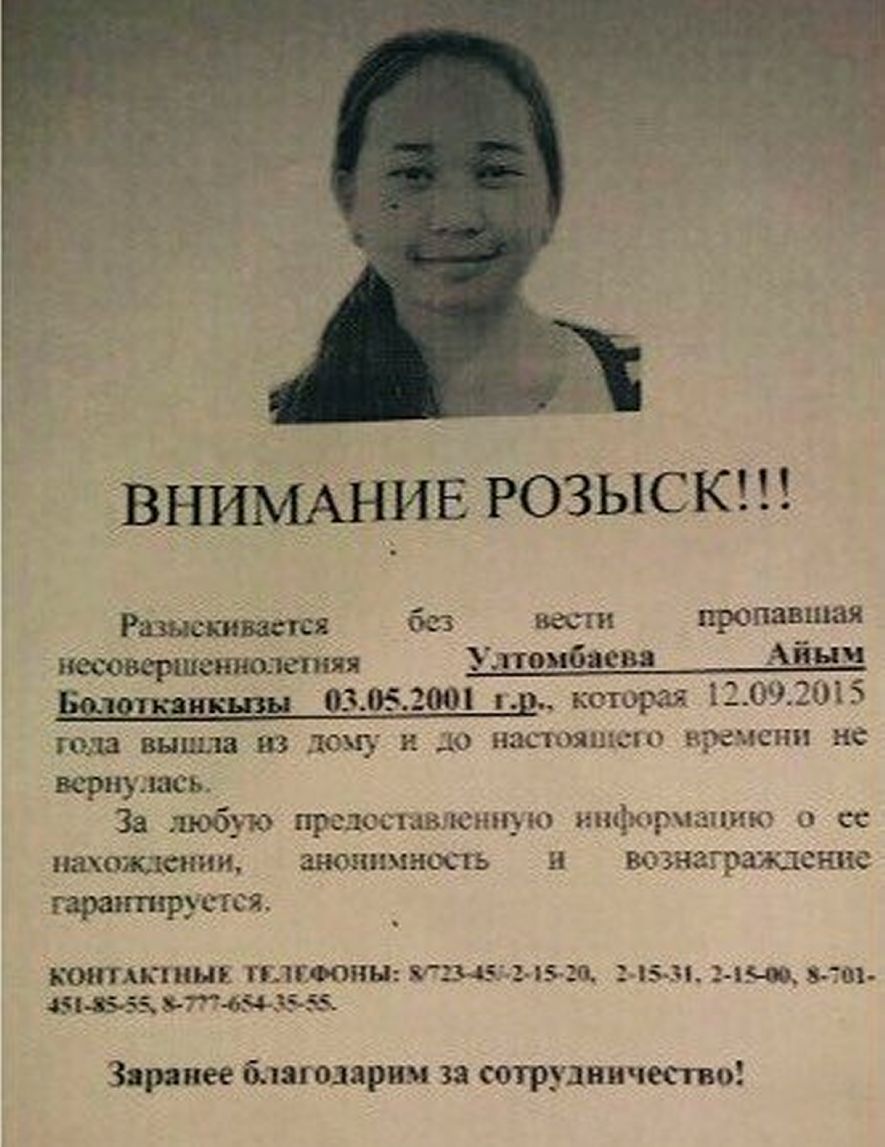 ВНИМАНИЕ РОЗЫСК!!!
Разыскивается без вести пропавшая
несовершеннолетняя Ултомбаева Айым
Болотканкызы 03.05.2001 г.р., которая 12.09.2015
года вышла из дому и до настоящего времени не
вернулась.
За любую предоставленную информацию о ее
нахождении, анонимность и вознаграждение
гарантируется.
КОНТАКТНЫЕ ТЕЛЕФОНЫ: 8/723-45/-2-15-20, 2-15-31, 2-15-00, 8-701-
451-85-55, 8-777-654-35-55.
Заранее благодарим за сотрудничество!